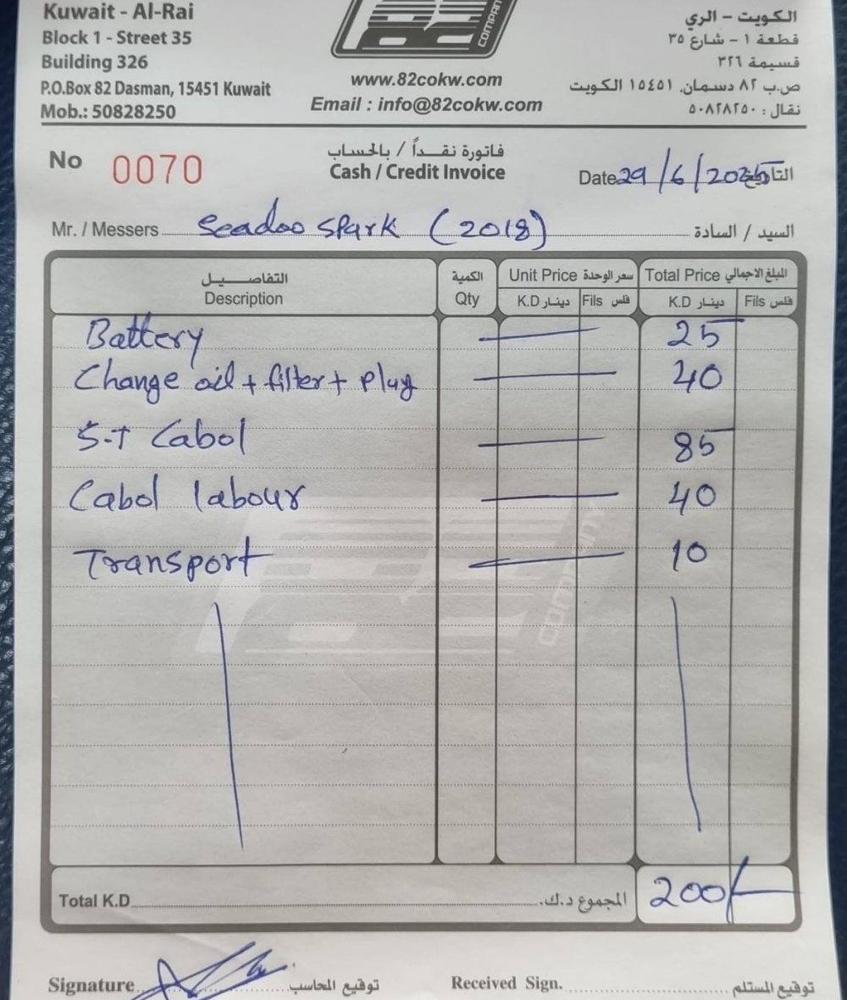 Kuwait - Al-Rai
Block 1 - Street 35
Building 326
P.O.Box 82 Dasman, 15451 Kuwait
Mob.: 50828250
82 COMPANY
www.82cokw.com
Email : info@82cokw.com
الكويت - الري
قطعة ١ - شارع ٣٥
قسيمة ٣٢٦
ص.ب ٨٢ دسمان, ١٥٤٥١ الكويت
نقال : ٥٠٨٢٨٢٥٠
No 0070
فاتورة نقداً / بالحساب
Cash / Credit Invoice
Date 29/6/2025 التاريخ
Mr. / Messers Seadoo Spark (2018) السيد / السادة
التفاصيل الكمية Unit Price سعر الوحدة Total Price المبلغ الاجمالي
Description Qty K.D دينار Fils فلس K.D دينار Fils فلس
Battery — 25
Change oil + filter + plug — 40
S-T Cabol — 85
Cabol labour — 40
Transport — 10
COMPANY
Total K.D المجموع د.ك. 200/-
Signature توقيع المحاسب Received Sign. توقيع المستلم